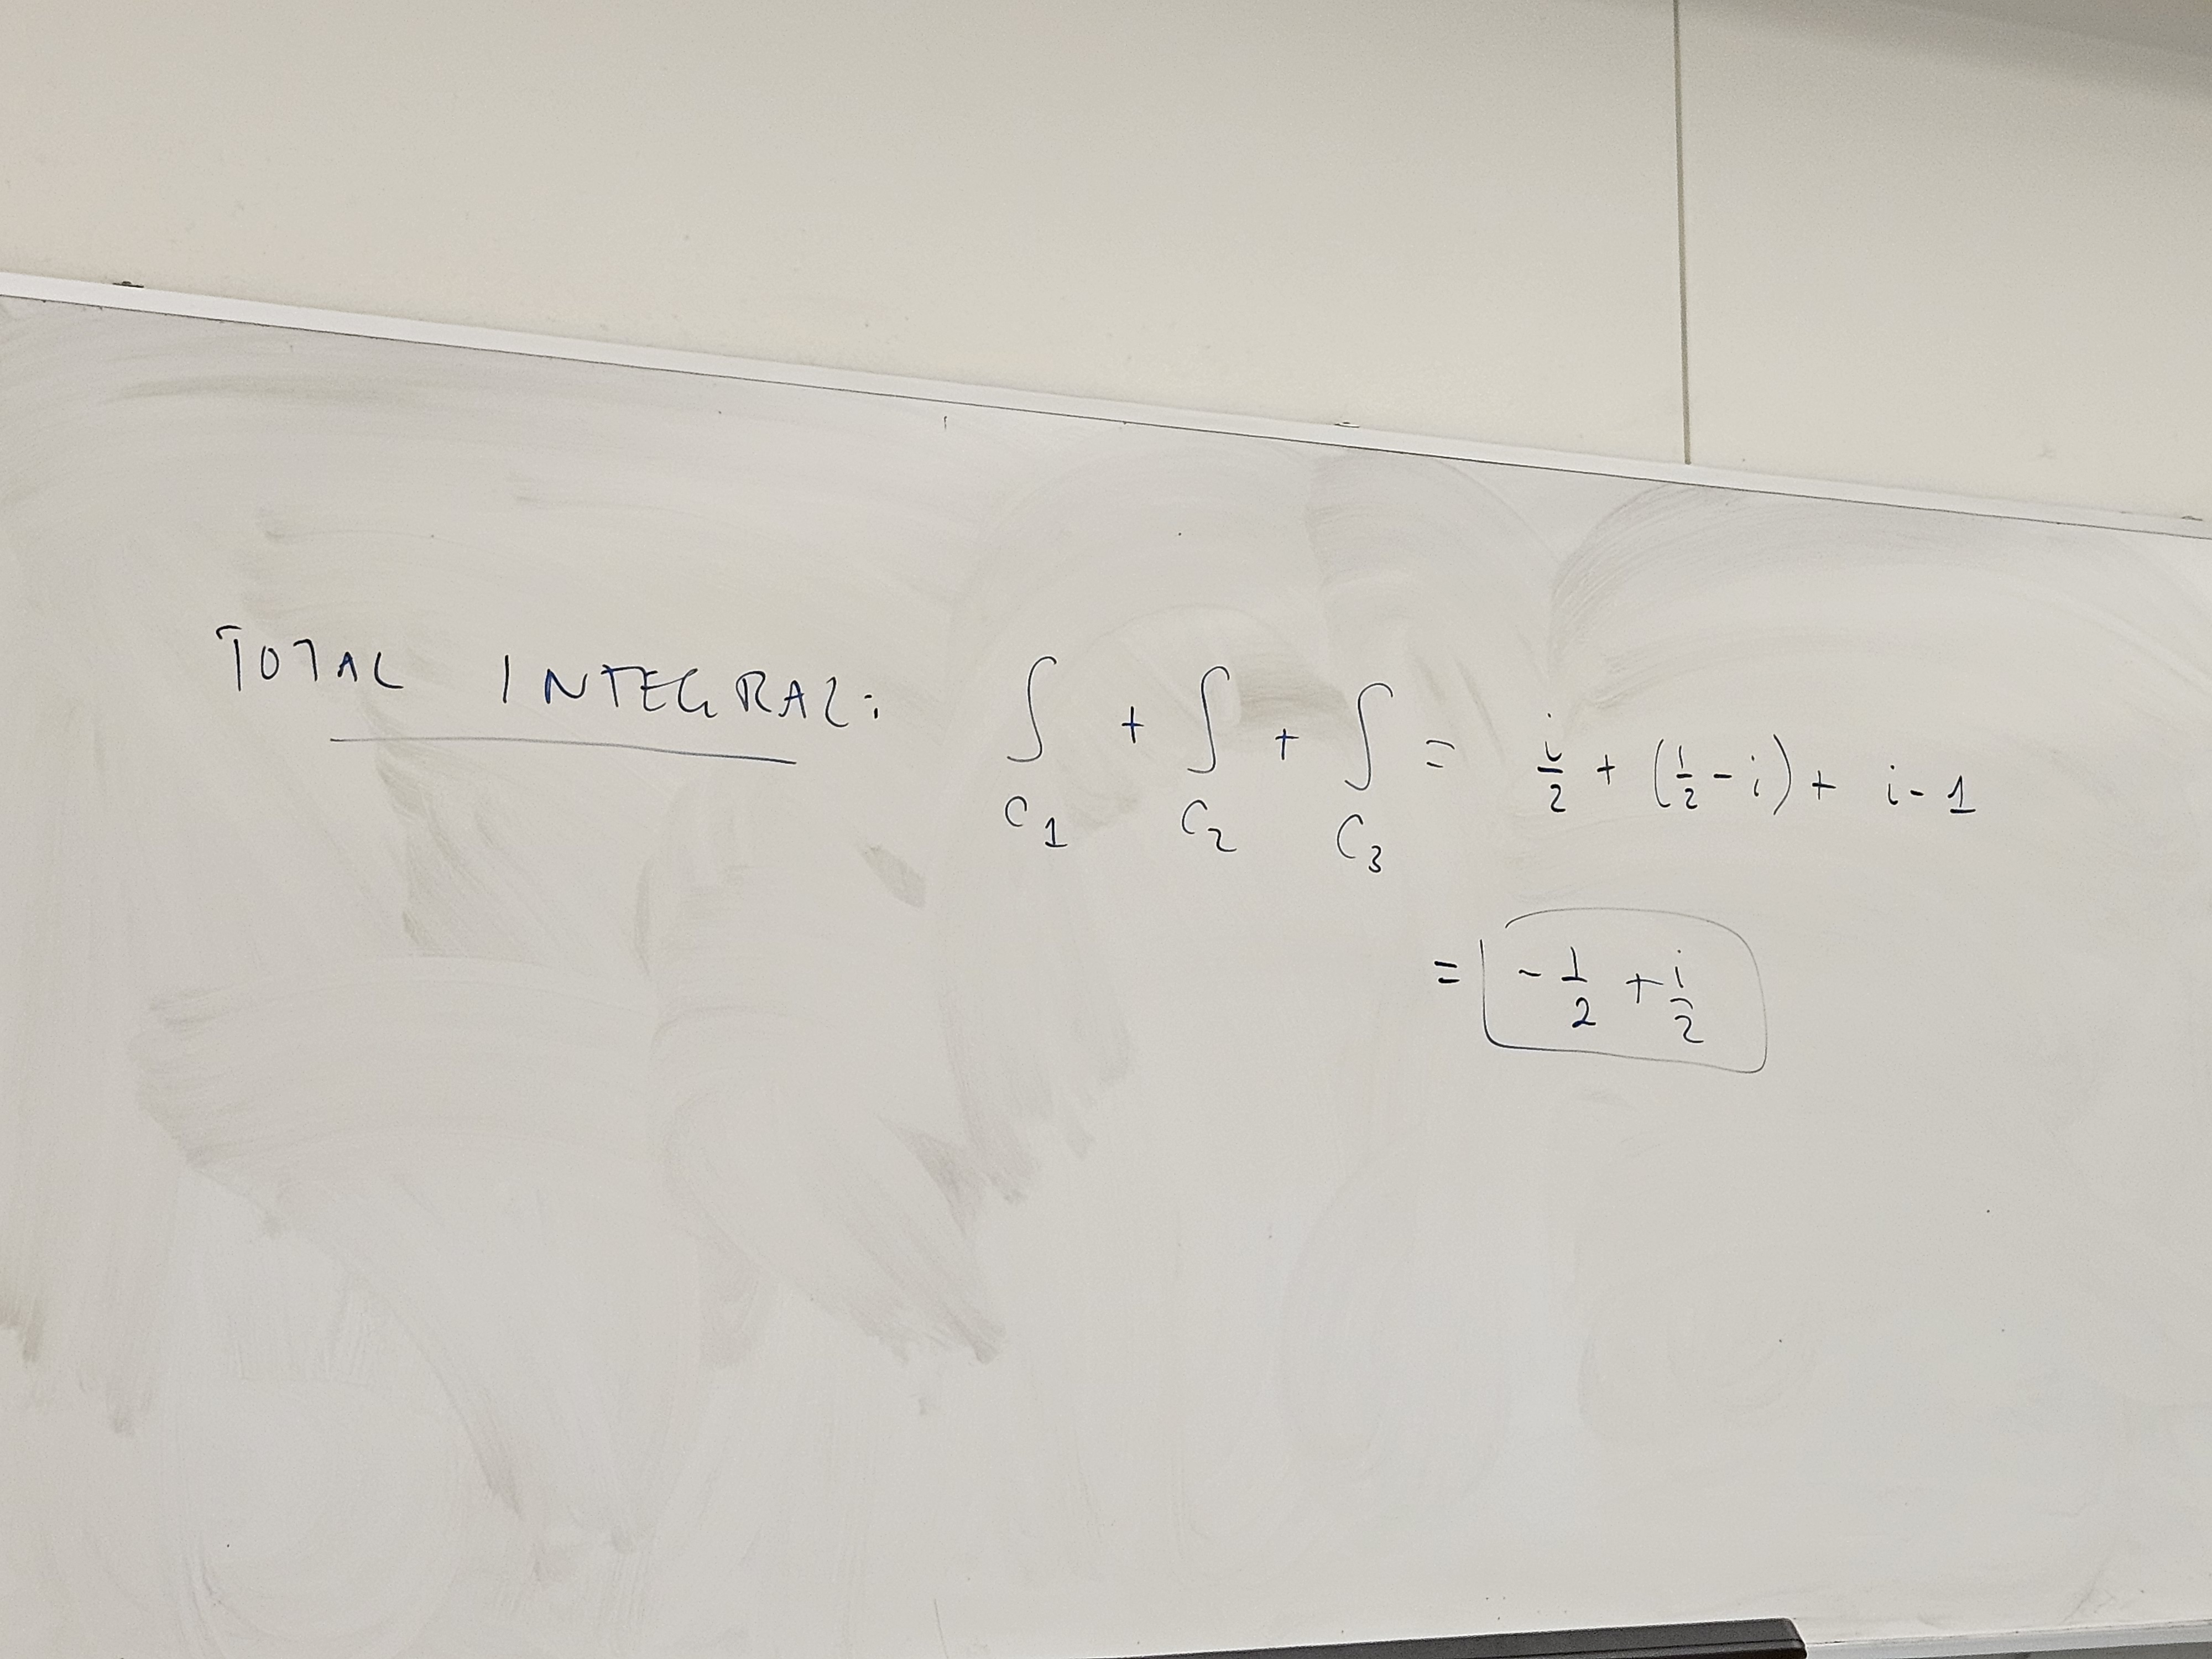 TOTAL INTEGRAL: ∫C1 + ∫C2 + ∫C3 = i/2 + (1/2 - i) + i - 1
= -1/2 + i/2